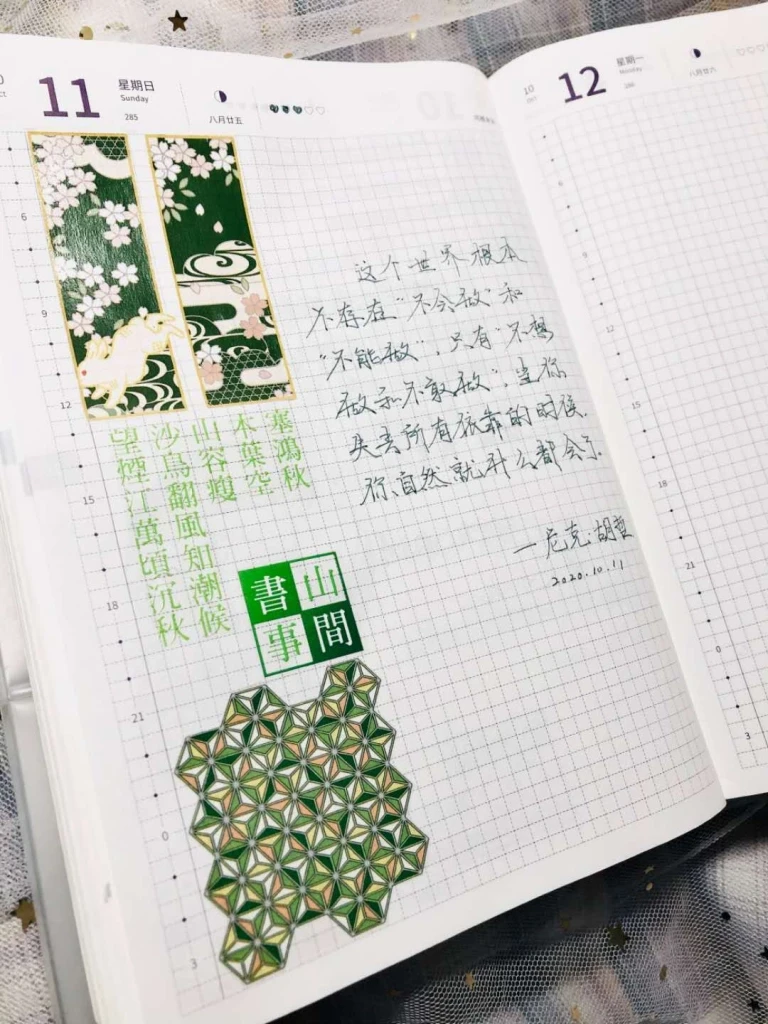 11
星期日
Sunday
285
八月廿五
6
9
12
15
18
21
0
3
塞鴻秋
木葉空
山容瘦
沙鳥翻風知潮候
望煙江萬頃沉秋
山間
書事
这个世界根本
不存在“不会做”和
“不能做”，只有“不想
做和不敢做”，当你
失去所有依靠的时候.
你自然就什么都会了.
—尼克·胡哲
2020.10.11
10
Oct
12
星期一
Monday
286
八月廿六
12
15
21
0
3